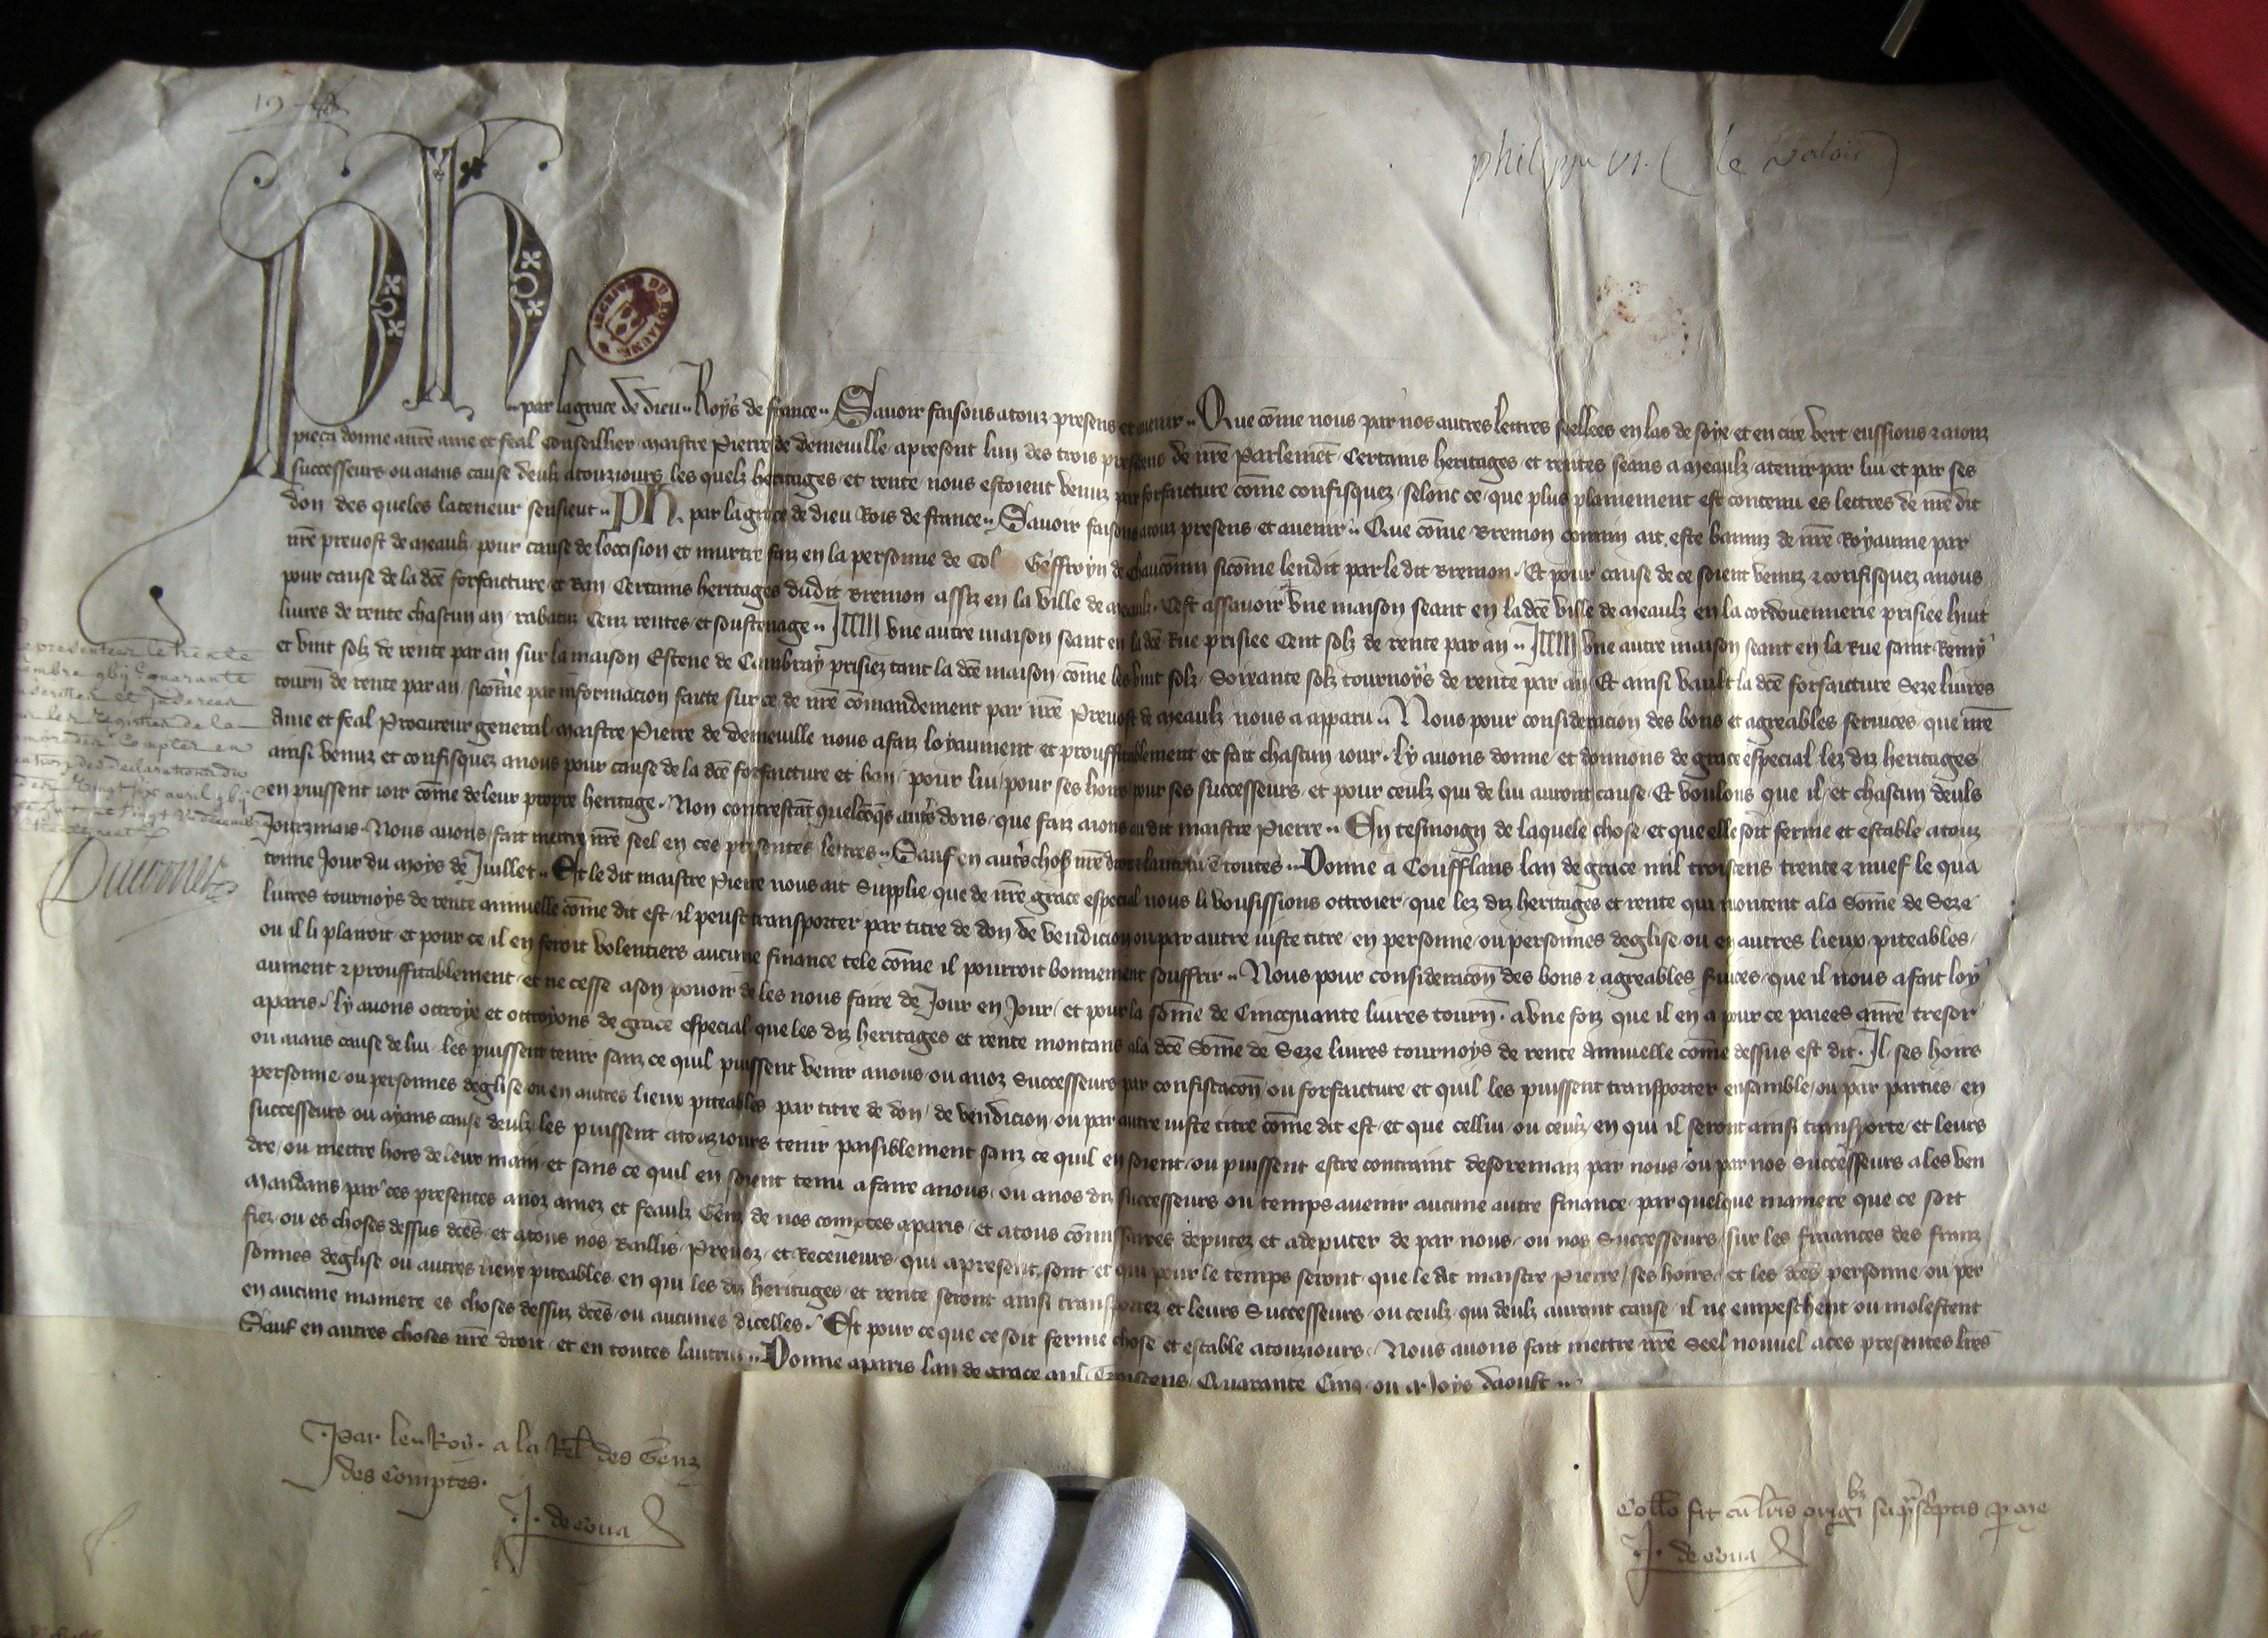 philippe VI. (le valois)
Ph par la grace de dieu Roys de france Savoir faisons a touz presens et avenir Que cõme nous par nos autres lettres seellees en las de soye et en cire vert eussions
pieca donne a nr̃e ame et feal Conseillier maistre Pierre de demeuille apresent lun des trois presidens de nr̃e Parlemẽt Certains heritages et rentes seans a meaulx a tenir par lui et par ses
successeurs ou aians cause deulx a touziours les quelz heritages et rente nous estoient venuz par forfaicture cõme confisquez selonc ce que plus plainement est contenu es lettres de nr̃e dit
don des queles la teneur sensient Ph. par la grace de dieu Rois de france Savoir faisons a touz presens et avenir Que cõme Bremon ait este banniz de nr̃e Royaume par
nr̃e prevost de meaulx pour cause de loccision et murtre faiz en la personne de Col Geffroyn de chauconin sicõme lendit par le dit Bremon Et pour cause de ce soient venuz z confisquez a nous
pour cause de la dc̃e forfaicture et Ban Certains heritages dudit Bremon assiz en la ville de meaulx Cest assavoir Une maison seant en la dc̃e ville de meaulx en la cordouennerie prisiee huit
livres de rente chascun an rabatuz Cenz rentes et soustenage Item une autre maison seant en la dc̃e Rue prisiee Cent solz de rente par an Item une autre maison seant en la Rue saint Remy
et vint solz de rente par an sur la maison Estene de Cambray prisiez tant la dc̃e maison cõme les vint solz Soixante solz tournoys de rente par an Et ainsi vault la dc̃e forfaicture Seze livres
tourñ de rente par an sicõme par informacion faicte sur ce de nr̃e cõmandement par nr̃e Prevost de meaulx nous a apparu Nous pour consideracion des bons et agreables services que nr̃e
Ame et feal Procureur general maistre Pierre de demeuille nous a faiz loyaument et prouffitablement et fait chascun iour ly avons donne et donnons de grace especial lez diz heritages
ainsi venuz et confisquez a nous pour cause de la dc̃e forfaicture et ban pour lui pour ses hoirs pour ses successeurs et pour ceulx qui de lui auront cause Et voulons que il et chascun deuls
en puissent ioir cõme de leur propre heritage Non contrestãt quelcõqs autr̃s dons que faiz aions au dit maistre Pierre En tesmoign de laquele chose et que elle soit ferme et estable a touz
Jourzmais Nous avons fait mettre nr̃e seel en ces presentes lettres Sauf en autr̃s choses nr̃e droit et lautrui ẽ toutes Donne a Coufflans lan de grace mil troiscens trente z nuef le qua
trime Jour du moys de Juillet Et le dit maistre Pierre nous ait Supplie que de nr̃e grace especial nous li vousissions ottroier que lez diz heritages et rente qui montent a la Sõme de Seze
livres tournoys de rente annuelle cõme dit est il peust transporter par titre de don de vendicion ou par autre iuste titre en personne ou personnes deglise ou en autres lieux piteables
ou il li plairoit et pour ce il en feroit volentiers aucune finance tele cõme il pourroit bonnement souffrir Nous pour consideracõn des bons z agreables services que il nous a fait loy
aument z prouffitablement et ne cesse a son povoir de les nous faire de Jour en Jour et pour la sõme de Cincquante livres tourñ. a une foiz que il en a pour ce paiees a nr̃e tresor
a paris ly avons ottroye et ottroyons de grace especial que les diz heritages et rente montans a la dc̃e Sõme de Seze livres tournoys de rente Annuelle cõme dessus est dit Il ses hoirs
ou aians cause de lui les puissent tenir sanz ce quil puissent venir a nous ou a noz Successeurs par confiscacõn ou forfaicture et quil les puissent transporter ensamble ou par parties en
personne ou personnes deglise ou en autres lieux piteables par titre de don de vendicion ou par autre iuste titre cõme dit est et que cellui ou ceulx en qui il seront ainsi transporte et leurs
successeurs ou ayans cause deulx les puissent a touziours tenir paisiblement sanz ce quil en soient ou puissent estre contraint desoremaiz par nous ou par nos Successeurs a les ven
dre ou mettre hors de leur main et sans ce quil en soient tenu a faire a nous ou a nos diz successeurs ou temps avenir aucune autre finance par quelque maniere que ce soit
Mandans par ces presentes a noz amez et feaulx Genz de nos comptes a paris et a tous cõmissaires deputez et a deputer de par nous ou nos Successeurs sur les finances des franz
fiez ou es choses dessus dc̃es et a tous nos Baillis Prevoz et Receveurs qui apresent sont et qui pour le temps seront que le dit maistre Pierre ses hoirs et les dc̃es personne ou per
sonnes deglise ou autres lieux piteables en qui les diz heritages et rente seront ainsi transportez et leurs Successeurs ou ceulx qui deulx auront cause il ne empeschent ou molestent
en aucune maniere es choses dessuz dc̃es ou aucunes dicelles Et pour ce que ce soit ferme chose et estable a touziours Nous avons fait mettre nr̃e Seel nouvel a ces presentes lr̃es
Sauf en autres choses nr̃e droit et en toutes lautrui Donne a paris lan de grace mil Troiscens Quarante Cinq ou Moys daoust
Par le Roy a la Rel̃ des Genz
des Comptes.
J. de cona
Coll̃o fit cũ lr̃is origĩbz sup̃sc̃ptis p̱ me
J. de cona